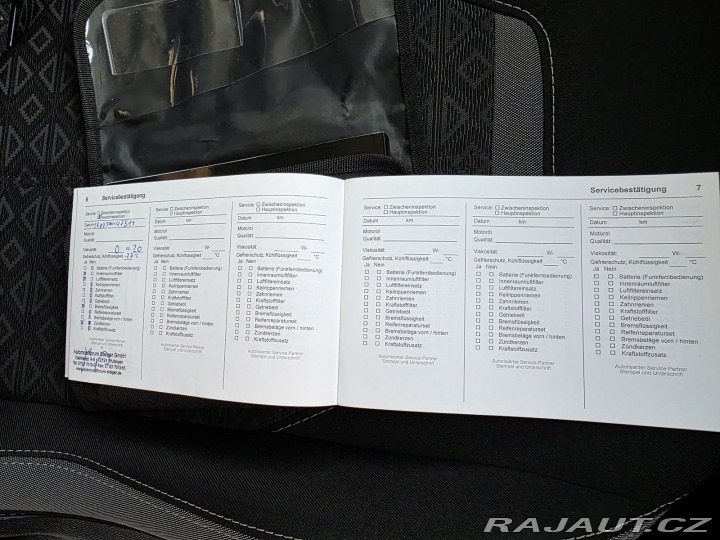 6 Servicebestätigung
Service: Zwischeninspektion
Hauptinspektion
Datum km
Motoröl
Qualität
Viskosität: 0 W- 20
Gefrierschutz, Kühlflüssigkeit °C
Ja Nein
Batterie (Funkfernbedienung)
Innenraumluftfilter
Luftfiltereinsatz
Keilrippenriemen
Zahnriemen
Kraftstoffilter
Getriebeöl
Bremsflüssigkeit
Reifenreparaturset
Bremsbeläge vorn / hinten
Zündkerzen
Kraftstoffzusatz
Autorisierter Service Partner
Stempel und Unterschrift
GmbH
Service: Zwischeninspektion
Hauptinspektion
Datum km
Motoröl
Qualität
Viskosität: W-
Gefrierschutz, Kühlflüssigkeit °C
Ja Nein
Batterie (Funkfernbedienung)
Innenraumluftfilter
Luftfiltereinsatz
Keilrippenriemen
Zahnriemen
Kraftstoffilter
Getriebeöl
Bremsflüssigkeit
Reifenreparaturset
Bremsbeläge vorn / hinten
Zündkerzen
Kraftstoffzusatz
Autorisierter Service Partner
Stempel und Unterschrift
Service: Zwischeninspektion
Hauptinspektion
Datum km
Motoröl
Qualität:
Viskosität: W-
Gefrierschutz, Kühlflüssigkeit °C
Ja Nein
Batterie (Funkfernbedienung)
Innenraumluftfilter
Luftfiltereinsatz
Keilrippenriemen
Zahnriemen
Kraftstoffilter
Getriebeöl
Bremsflüssigkeit
Reifenreparaturset
Bremsbeläge vorn / hinten
Zündkerzen
Kraftstoffzusatz
Autorisierter Service Partner
Stempel und Unterschrift
Servicebestätigung 7
Service: Zwischeninspektion
Hauptinspektion
Datum km
Motoröl
Qualität:
Viskosität: W-
Gefrierschutz, Kühlflüssigkeit °C
Ja Nein
Batterie (Funkfernbedienung)
Innenraumluftfilter
Luftfiltereinsatz
Keilrippenriemen
Zahnriemen
Kraftstoffilter
Getriebeöl
Bremsflüssigkeit
Reifenreparaturset
Bremsbeläge vorn / hinten
Zündkerzen
Kraftstoffzusatz
Autorisierter Service Partner
Stempel und Unterschrift
Service: Zwischeninspektion
Hauptinspektion
Datum km
Motoröl
Qualität:
Viskosität: W-
Gefrierschutz, Kühlflüssigkeit °C
Ja Nein
Batterie (Funkfernbedienung)
Innenraumluftfilter
Luftfiltereinsatz
Keilrippenriemen
Zahnriemen
Kraftstoffilter
Getriebeöl
Bremsflüssigkeit
Reifenreparaturset
Bremsbeläge vorn / hinten
Zündkerzen
Kraftstoffzusatz
Autorisierter Service Partner
Stempel und Unterschrift
Service: Zwischeninspektion
Hauptinspektion
Datum km
Motoröl
Qualität:
Viskosität: W-
Gefrierschutz, Kühlflüssigkeit °C
Ja Nein
Batterie (Funkfernbedienung)
Innenraumluftfilter
Luftfiltereinsatz
Keilrippenriemen
Zahnriemen
Kraftstoffilter
Getriebeöl
Bremsflüssigkeit
Reifenreparaturset
Bremsbeläge vorn / hinten
Zündkerzen
Kraftstoffzusatz
Autorisierter Service Partner
Stempel und Unterschrift
RAJAUT.CZ